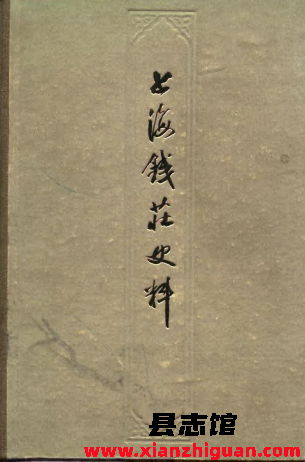 上海钱莊史料
县志馆
www.xianzhiguan.com